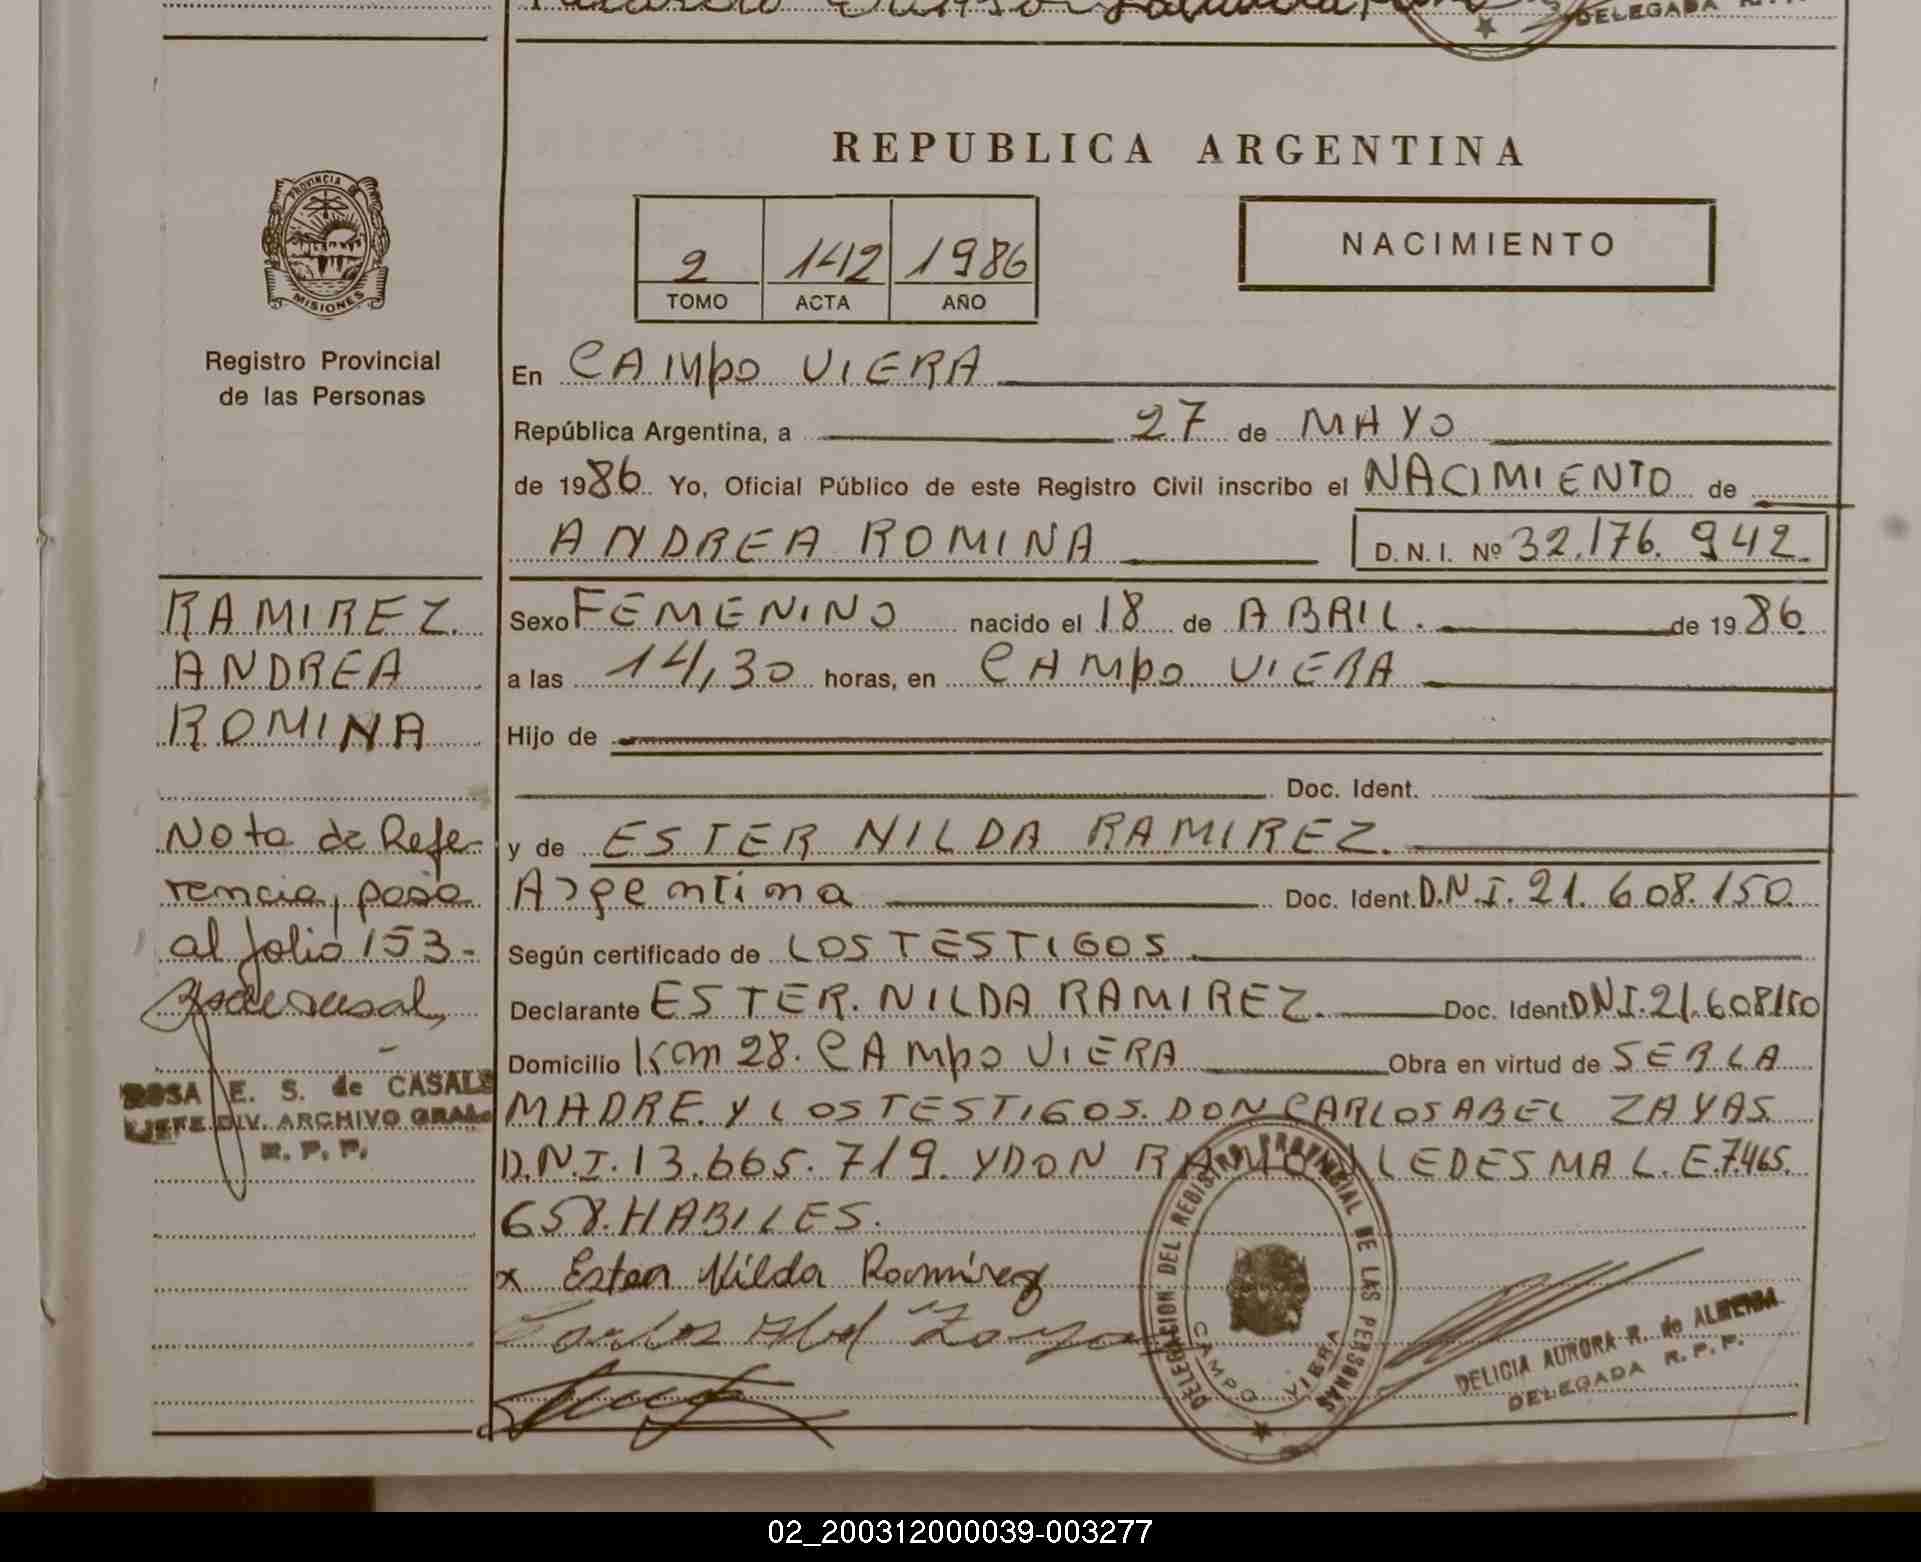 DELEGADA R.P.P.
REPUBLICA ARGENTINA
PROVINCIA DE
MISIONES
Registro Provincial
de las Personas
2 142 1986
TOMO ACTA AÑO
NACIMIENTO
En CAMPO VIERA
República Argentina, a 27 de MAYO
de 1986 Yo, Oficial Público de este Registro Civil inscribo el NACIMIENTO de
ANDREA ROMINA D. N. I. Nº 32.176.942.
RAMIREZ.
ANDREA
ROMINA
Sexo FEMENINO nacido el 18 de ABRIL. de 1986
a las 14,30 horas, en CAMPO VIERA
Hijo de
Doc. Ident.
y de ESTER NILDA RAMIREZ.
Argentina Doc. Ident. D.N.I. 21.608.150
Según certificado de LOS TESTIGOS
Declarante ESTER. NILDA RAMIREZ. Doc. Ident D.N.I. 21.608150
Domicilio Km 28. CAMPO VIERA Obra en virtud de SER LA
MADRE. Y LOS TESTIGOS. DON CARLOS ABEL ZAYAS.
D.N.I. 13.665.719. Y DON RAMON LEDESMA L.E. 7.465.
658. HABILES.
x Ester Nilda Ramirez
Carlos Abel Zayas
Nota de Refe-
rencia, pasa
al folio 153-
ROSA E. S. de CASALS
JEFE DIV. ARCHIVO GRAL.
R. P. P.
DELEGACION DEL REGISTRO PROVINCIAL DE LAS PERSONAS
CAMPO VIERA
DELICIA AURORA R. de ALMEIDA
DELEGADA R. P. P.
02_200312000039-003277